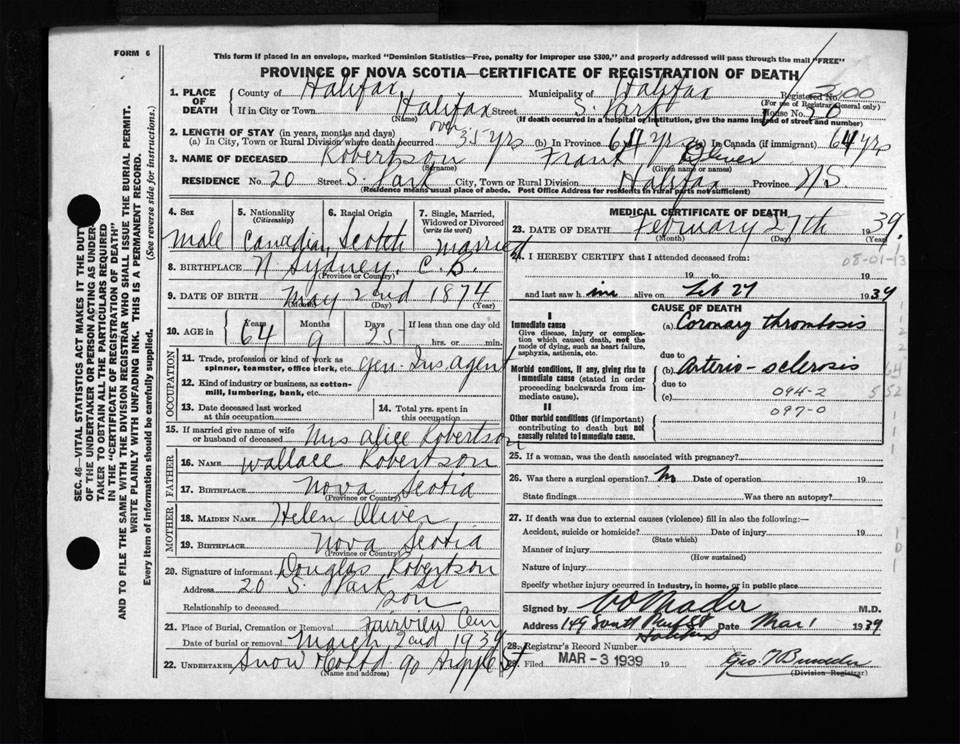 FORM 6
This form if placed in an envelope, marked "Dominion Statistics—Free, penalty for improper use $300," and properly addressed will pass through the mail "FREE"
PROVINCE OF NOVA SCOTIA—CERTIFICATE OF REGISTRATION OF DEATH
1. PLACE OF DEATH County of Halifax Municipality of Halifax Registered No. 100
(For use of Registrar General only)
If in City or Town Halifax Street S. Park House No. 20
(Name) (If death occurred in a hospital or institution, give the name instead of street and number)
2. LENGTH OF STAY (in years, months and days)
(a) In City, Town or Rural Division where death occurred over 35 yrs (b) In Province 64 yrs (c) In Canada (if immigrant) 64 yrs
3. NAME OF DECEASED Robertson Frank Oliver
(Surname) (Given name or names)
RESIDENCE No. 20 Street S. Park City, Town or Rural Division Halifax Province N S
(Residence means usual place of abode. Post Office Address for Residents in rural parts not sufficient)
4. Sex 5. Nationality 6. Racial Origin 7. Single, Married, Widowed or Divorced
(Citizenship) (write the word)
Male Canadian Scotch Married
8. BIRTHPLACE N Sydney. C. B.
(Province or Country)
9. DATE OF BIRTH May 2nd 1874
(Month) (Day) (Year)
10. AGE in Years Months Days If less than one day old
64 9 25 hrs. or min.
OCCUPATION
11. Trade, profession or kind of work as spinner, teamster, office clerk, etc. Gen. Ins Agent
12. Kind of industry or business, as cotton-mill, lumbering, bank, etc.
13. Date deceased last worked at this occupation 14. Total yrs. spent in this occupation
15. If married give name of wife or husband of deceased Mrs Alice Robertson
FATHER
16. NAME Wallace Robertson
17. BIRTHPLACE Nova Scotia
(Province or Country)
MOTHER
18. MAIDEN NAME Helen Oliver
19. BIRTHPLACE Nova Scotia
(Province or Country)
20. Signature of informant Douglas Robertson
Address 20 S. Park St
Relationship to deceased son
21. Place of Burial, Cremation or Removal Fairview Cem
Date of burial or removal March 2nd 1939
22. UNDERTAKER Snow & Co Ltd 90 Argyle St
(Name and address)
MEDICAL CERTIFICATE OF DEATH
23. DATE OF DEATH February 27th 1939.
(Month) (Day) (Year)
24. I HEREBY CERTIFY that I attended deceased from:
08-01-13
19 to 19
and last saw him alive on Feb 27 1939
CAUSE OF DEATH
I
Immediate cause
Give disease, injury or complication which caused death, not the mode of dying, such as heart failure, asphyxia, asthenia, etc.
(a) Coronary thrombosis
due to
Morbid conditions, if any, giving rise to immediate cause (stated in order proceeding backwards from immediate cause).
(b) Arterio-sclerosis
due to
(c) 094-2
097-0
II
Other morbid conditions (if important) contributing to death but not causally related to immediate cause.
25. If a woman, was the death associated with pregnancy?
26. Was there a surgical operation? No Date of operation 19
State findings Was there an autopsy?
27. If death was due to external causes (violence) fill in also the following:—
Accident, suicide or homicide? Date of injury 19
(State which)
Manner of injury
(How sustained)
Nature of injury
Specify whether injury occurred in industry, in home, or in public place
Signed by M.D.
Address 149 South Park St Halifax Date Mar 1 1939
28. Registrar's Record Number
29. Filed MAR - 3 1939 19
(Division Registrar)
SEC. 46—VITAL STATISTICS ACT MAKES IT THE DUTY
OF THE UNDERTAKER OR PERSON ACTING AS UNDER-
TAKER TO OBTAIN ALL THE PARTICULARS REQUIRED
IN THE "CERTIFICATE OF REGISTRATION OF DEATH"
AND TO FILE THE SAME WITH THE DIVISION REGISTRAR WHO SHALL ISSUE THE BURIAL PERMIT.
WRITE PLAINLY WITH UNFADING INK. THIS IS A PERMANENT RECORD.
Every item of information should be carefully supplied. (See reverse side for instructions.)